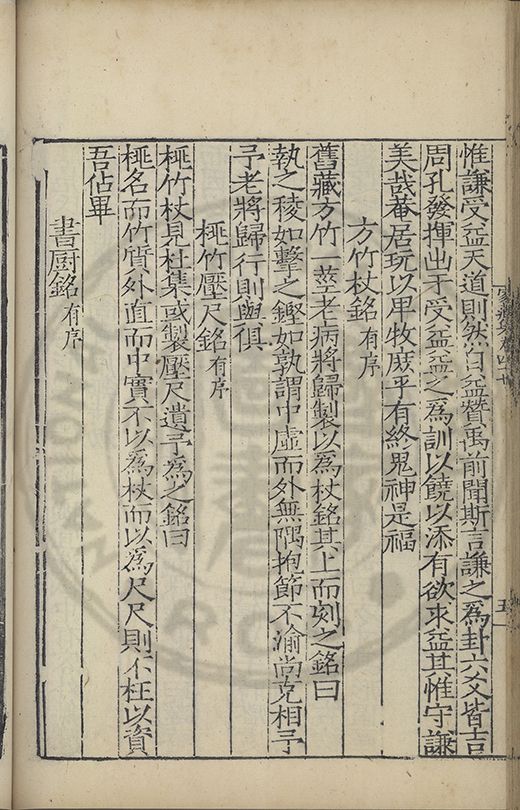 惟謙受益天道則然自益贊禹前聞斯言謙之爲卦六爻皆吉
周孔發揮出于受益益之爲訓以饒以添有欲求益其惟守謙
美哉菴居玩以卑牧庶乎有終鬼神是福
方竹杖銘有序
舊藏方竹一莖老病將歸製以爲杖銘其上而刻之銘曰
執之稜如擊之鏗如孰謂中虛而外無隅抱節不渝尚克相予
予老將歸行則與俱
桃竹壓尺銘有序
桃竹杖見杜集或製壓尺遺予爲之銘曰
桃名而竹質外直而中實不以爲杖而以爲尺尺則不枉以資
吾佔畢
書厨銘有序